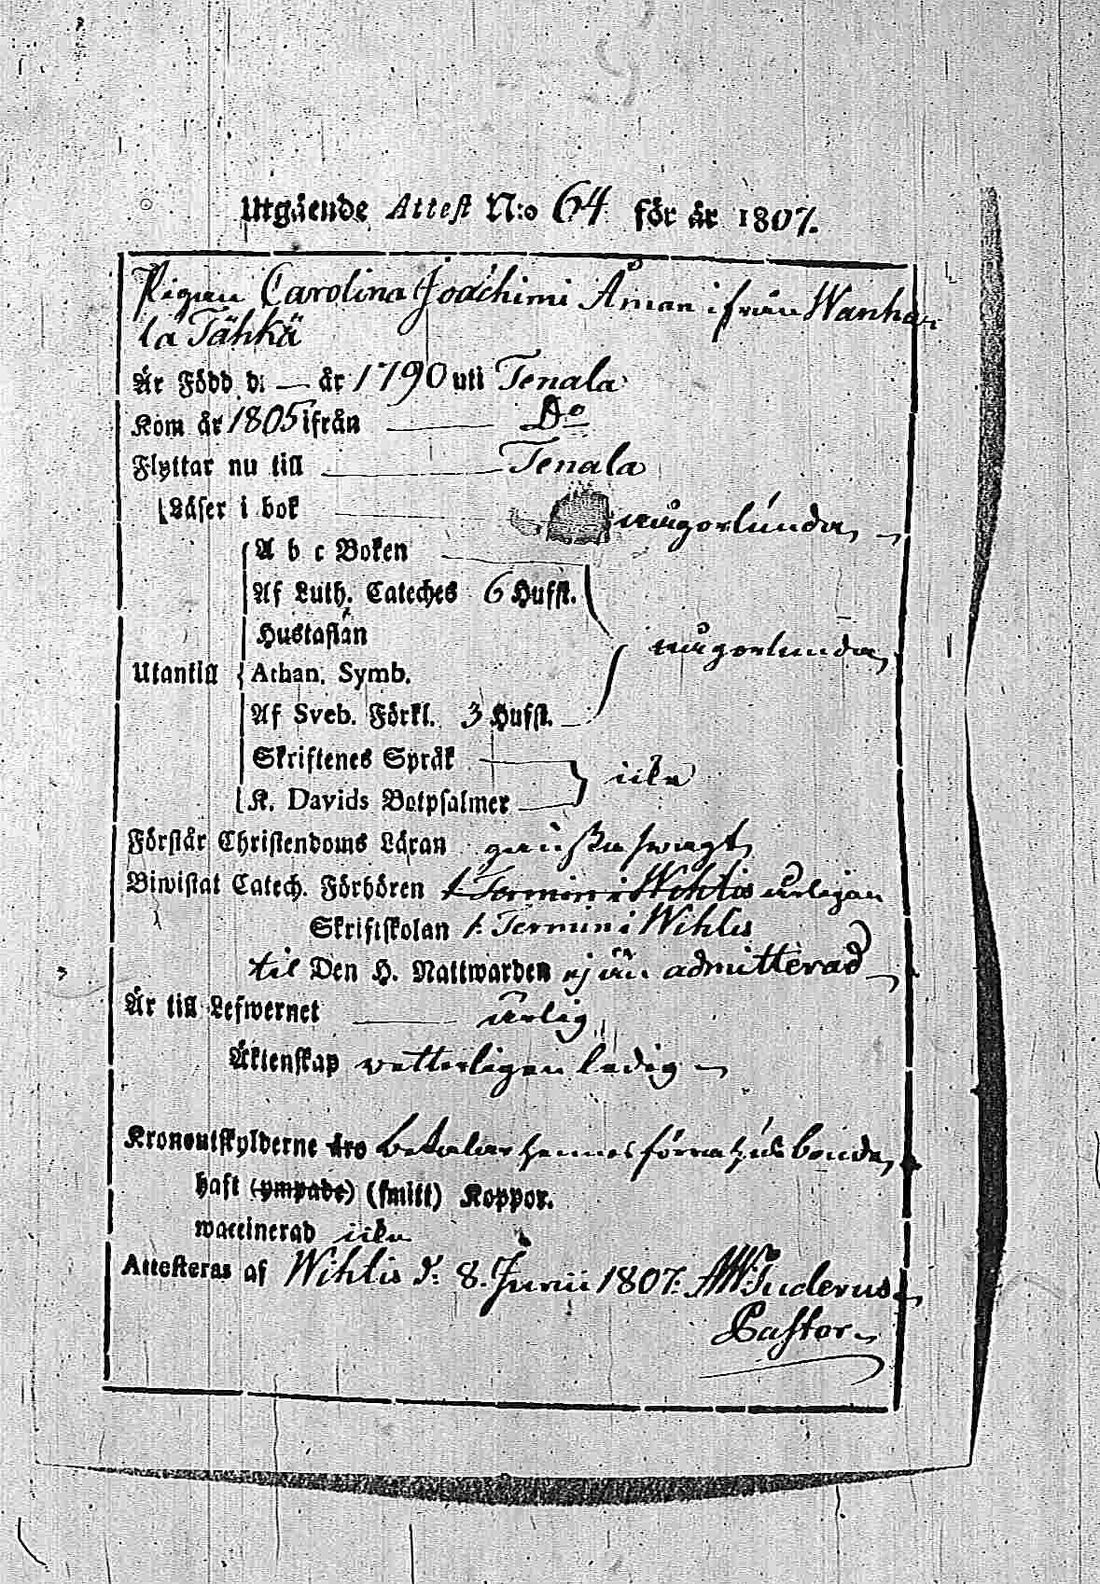 Utgående Attest N:o 64 för år 1807.
Pigan Carolina Joachimi Åman ifrån Wanha-
la Tähkä
Är Född d. — år 1790 uti Tenala
Kom år 1805 ifrån — Do
Flyttar nu till — Tenala
Läser i bok — någorlunda
A b c Boken
Af Luth. Cateches 6 Hufst.
Hustaflan
någorlunda
Utantill Athan. Symb.
Af Sveb. Förkl. 3 Hufst.
Skriftenes Språk
icke
K. Davids Botpsalmer
Förstår Christendoms Läran ganska swagt
Biwistat Catech. Förhören 1 Termin i Wihtis årligen
Skriftskolan 1. Termin i Wihtis
til Den H. Nattwarden ej än admitterad
Är till Lefwernet — ärlig
Äktenskap vetterligen ledig
Kronoutskylderne tro betalar hennes förra husbonde
haft (ympade) (smitt) Koppor.
waccinerad icke
Attesteras af Wihtis d. 8. Junii 1807. Tuderus
Pastor